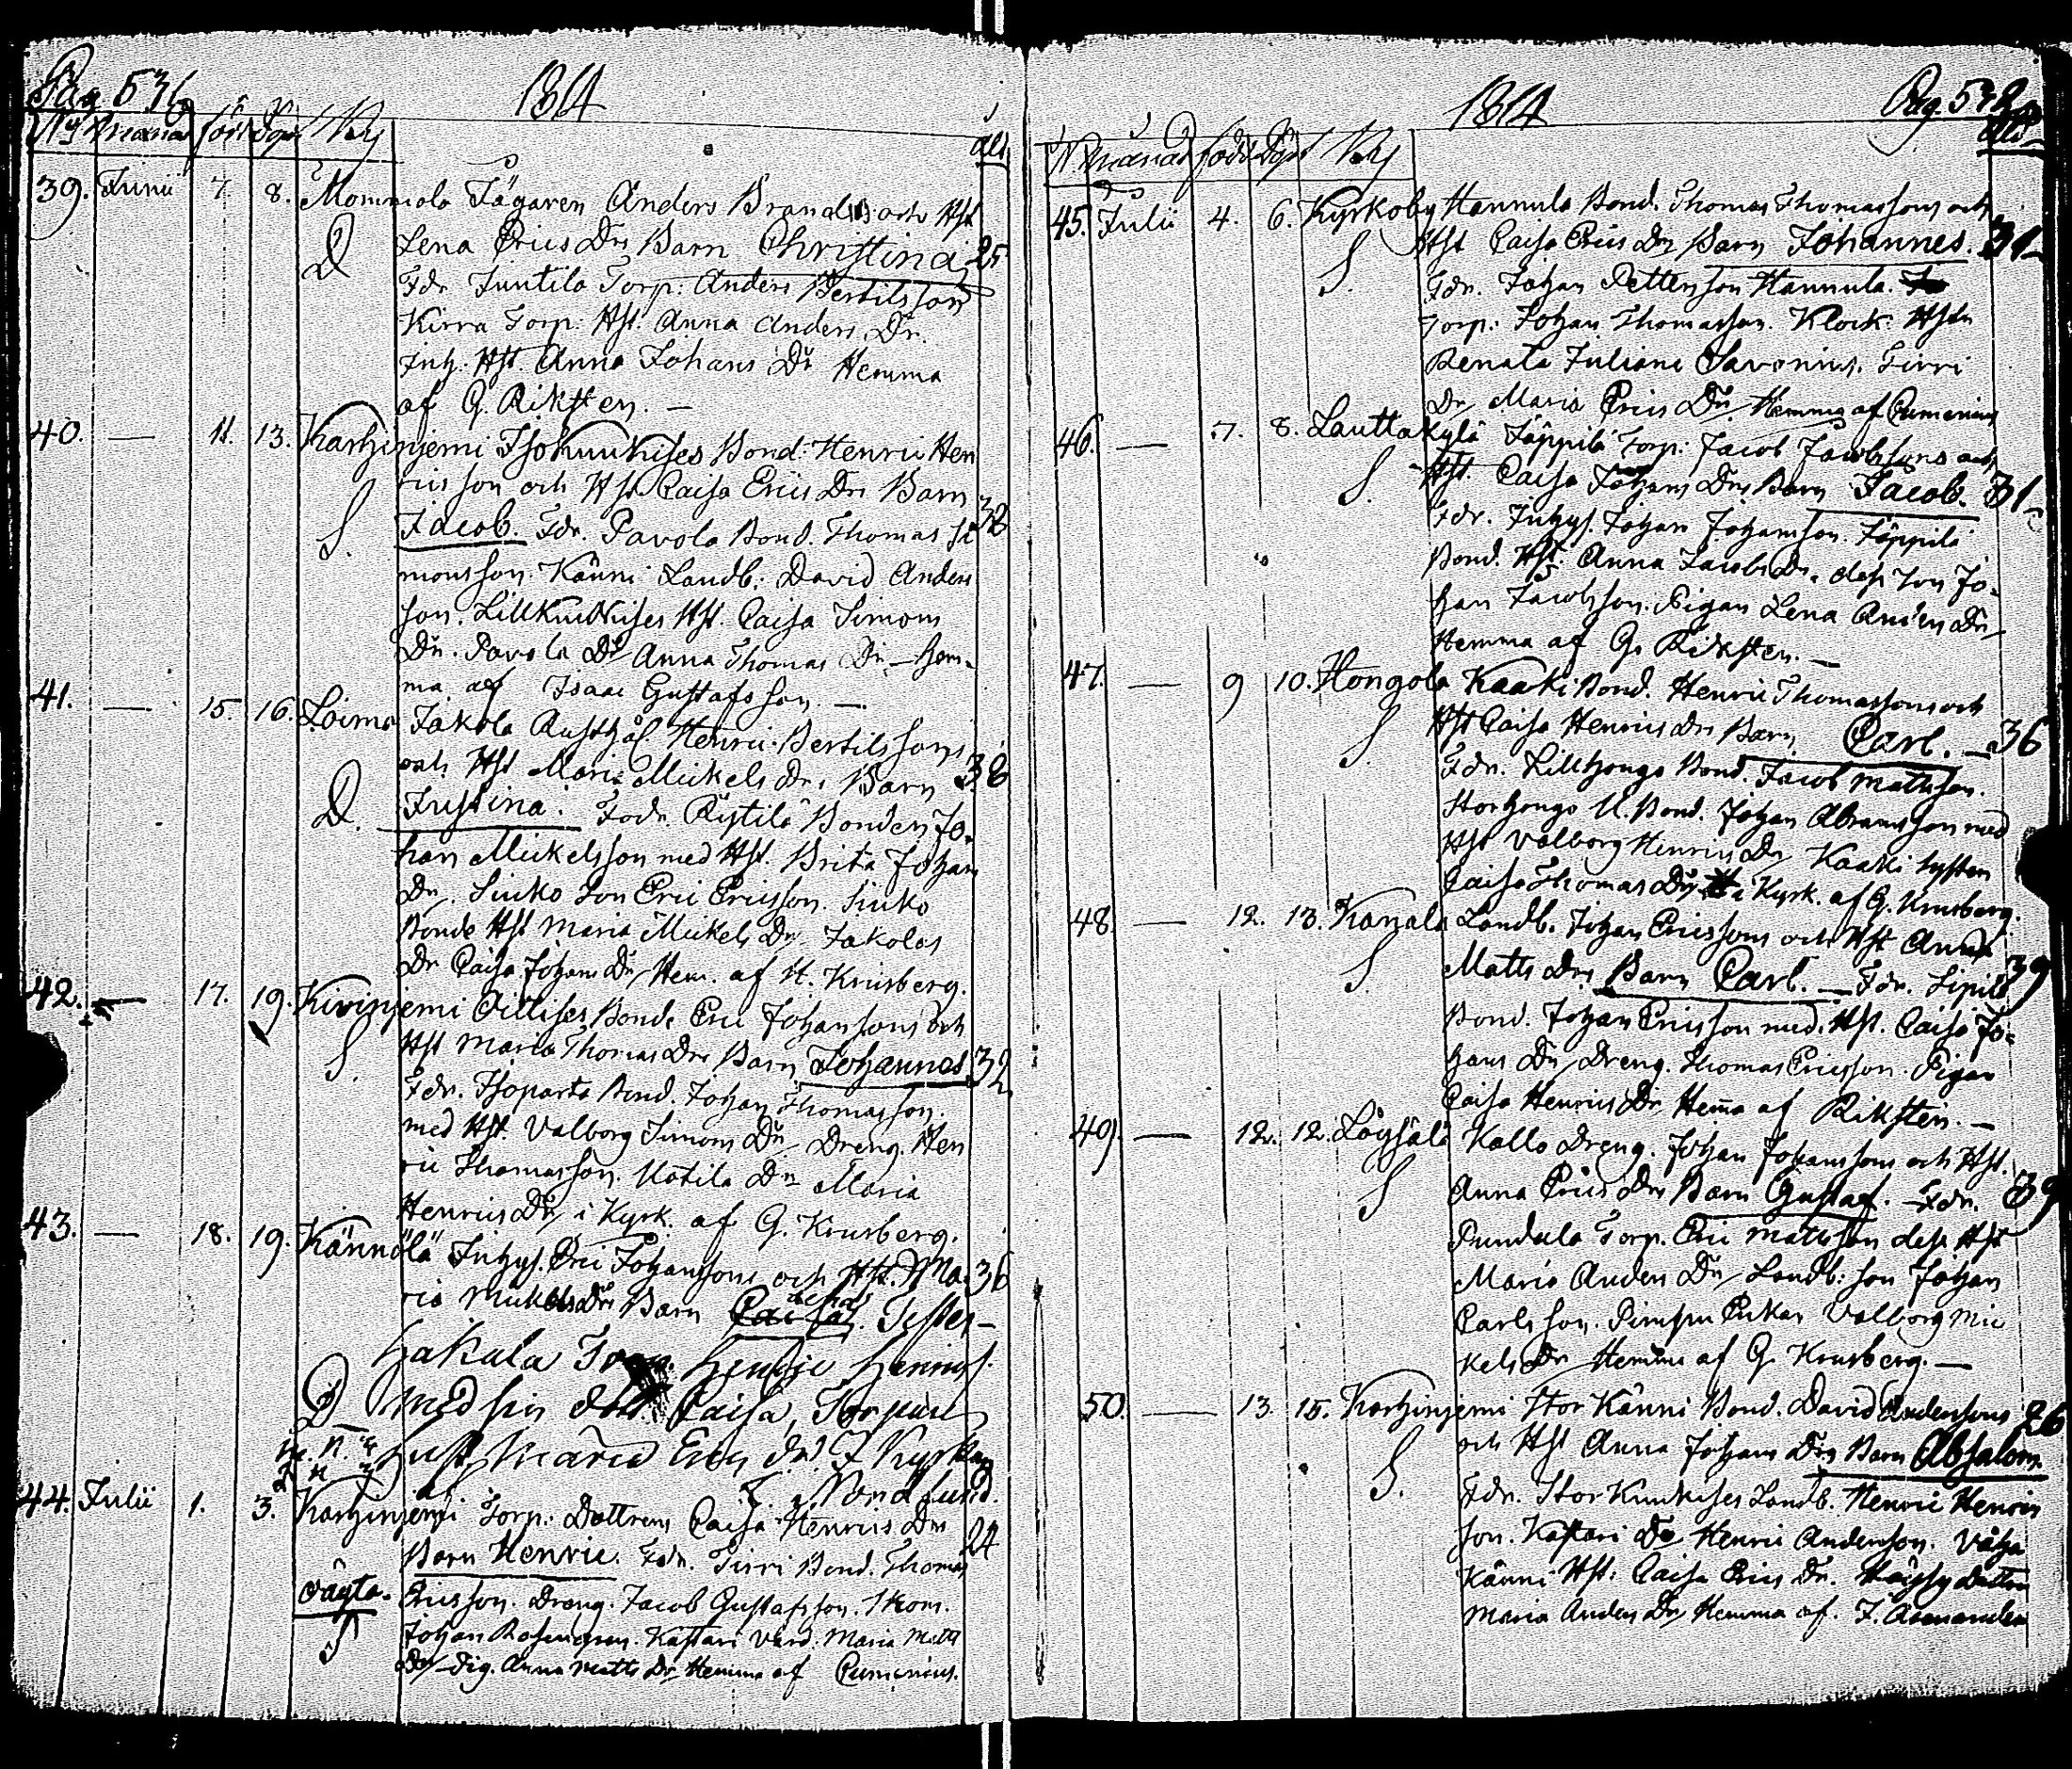 Pag 536
1814
N månad föd. Döpt. By
ålr
39. Junii 7. 8. Mommola Jägaren Anders Brand och Hst
D Lena Erics Drs Barn Christina 25
Fdr. Juntila Torp: Anders Bertilsson
Kirra Torp: Hst. Anna Anders Dr.
Inh. Hst. Anna Johans Dr Hemma
af G. Riksten. —
40. — 11. 13. Karhinjemi Isokuukises Bond: Henric Hen
ricsson och Hst Caisa Erics Drs Barn 32
S. Jacob. Fdr. Pavola Bond. Thomas Si
monsson. Känni Landb: David Anders
son. Lillkuukises Hst. Caisa Simons
Dr. Pavola Dr Anna Thomas Dr — hem-
ma af Isaac Gustafsson. —
41. — 15. 16. Loima Jakola Henric Bertilssons
och Hst Maria Mickels Drs Barn 38
D. Justina. Fodr. Rÿtilä Bonden Jo-
han Mickelsson med Hst. Brita Johans
Dr. Siuko Son Eric Ericsson. Siuko
Bonde Hst Maria Mickels Dr. Jakolas
Dr Caisa Johans Dr Hem. af H. Krusberg.
42. — 17. 19. Kivinjemi Ollises Bonde Eric Johanssons och
Hst Maria Thomas Drs Barn Johannes 32
S. Fdr. Isoparta Bond. Johan Thomasson.
med Hst. Valborg Simons Dr Dreng. Hen
ric Thomasson. Kotila Dr Maria
Henrics Dr i Kyrk. af G. Krusberg.
43. — 18. 19. Kännölä Inhys. Eric Johanssons och Hst. Ma- 36
ria Mickels Drs Barn Caisa. Testes —
hakula Torp. Henric Henrics.
D med sin Caisa, Torpare
hust. Maria Erics dr. I Kyrkan
af Nordlund.
44. Julii 1. 3. Karhinjemi Torp: Dottrens Caisa Henrics Drs 24
Barn Henric. Fdr. Sirri Bond. Thomas
oägta. Ericsson. Dreng. Jacob Gustafsson. Skom.
S Johan Rosengren. Kaftari Värd. Maria Matts
Dr Pig. Anna Matts Dr Hemma af Cumenius.
Pag. 537
1814
N. månad född Döpt By
ålr
45. Julii 4. 6. Kyrkoby Hannula Bond. Thomas Thomassons och
Hst Caisa Erics Drs Barn Johannes. 31
S. Fdr. Johan Pettersson Hannula.
Torp: Johan Thomasson. Klock: Hstr
Renata Juliana Savonius. Sirri
Dr Maria Erics Dr Hemma af Cumenius
46. — 7. 8. Lauttakylä Jäppilä Torp: Jacob Jacobssons och
Hst. Caisa Johans Drs Barn Jacob. 31
S. Fdr. Inhys. Johan Johansson. Jäppilä
Bond. Hst: Anna Jacobs Dr. dess Son Jo-
han Jacobsson. Pigan Lena Anders Dr
Hemma af G. Riksten. —
47. — 9 10. Hongola Kaaki Bond. Henric Thomassons och
Hst Caisa Henrics Drs Barn Carl. — 36
S. Fdr. Lillhongo Bond. Jacob Mattsson.
Storhongo U. Bond. Johan Abramsson med
Hst Valborg Henrics Dr Kaaki Systern
Caisa Thomas Dr i Kyrk. af G. Krusberg.
48. — 12. 13. Kanala Landb. Johan Ericssons och Hst Anna
S Matts Drs Barn Carl. — Fdr. Sipilä 39
Bond. Johan Ericsson med Hst. Caisa Jo-
hans Dr Dreng. Thomas Ericsson. Pigan
Caisa Henrics Dr Hema af Riksten. —
49. — 12. 12. Löysälä Kallo Dreng. Johan Johanssons och Hst.
S Anna Erics Drs Barn Gustaf. — Fdr. 39
Pundula Torp. Eric Mattsson dess Hst
Maria Anders Dr Landb: Son Johan
Carlsson. Pirisjn Pikan Valborg Mic
kels Dr Hemma af G. Krusberg. —
50. — 13. 15. Karhinjemi Stor Känni Bond. David Anderssons 26
och Hst Anna Johans Drs Barn Absalom.
S. Fdr. Stor Kuukises Landb. Henric Henrics
son. Kaftari Dr Henric Andersson. Väha
Känni Hst: Caisa Erics Dr.
Maria Anders Dr Hemma af. F.